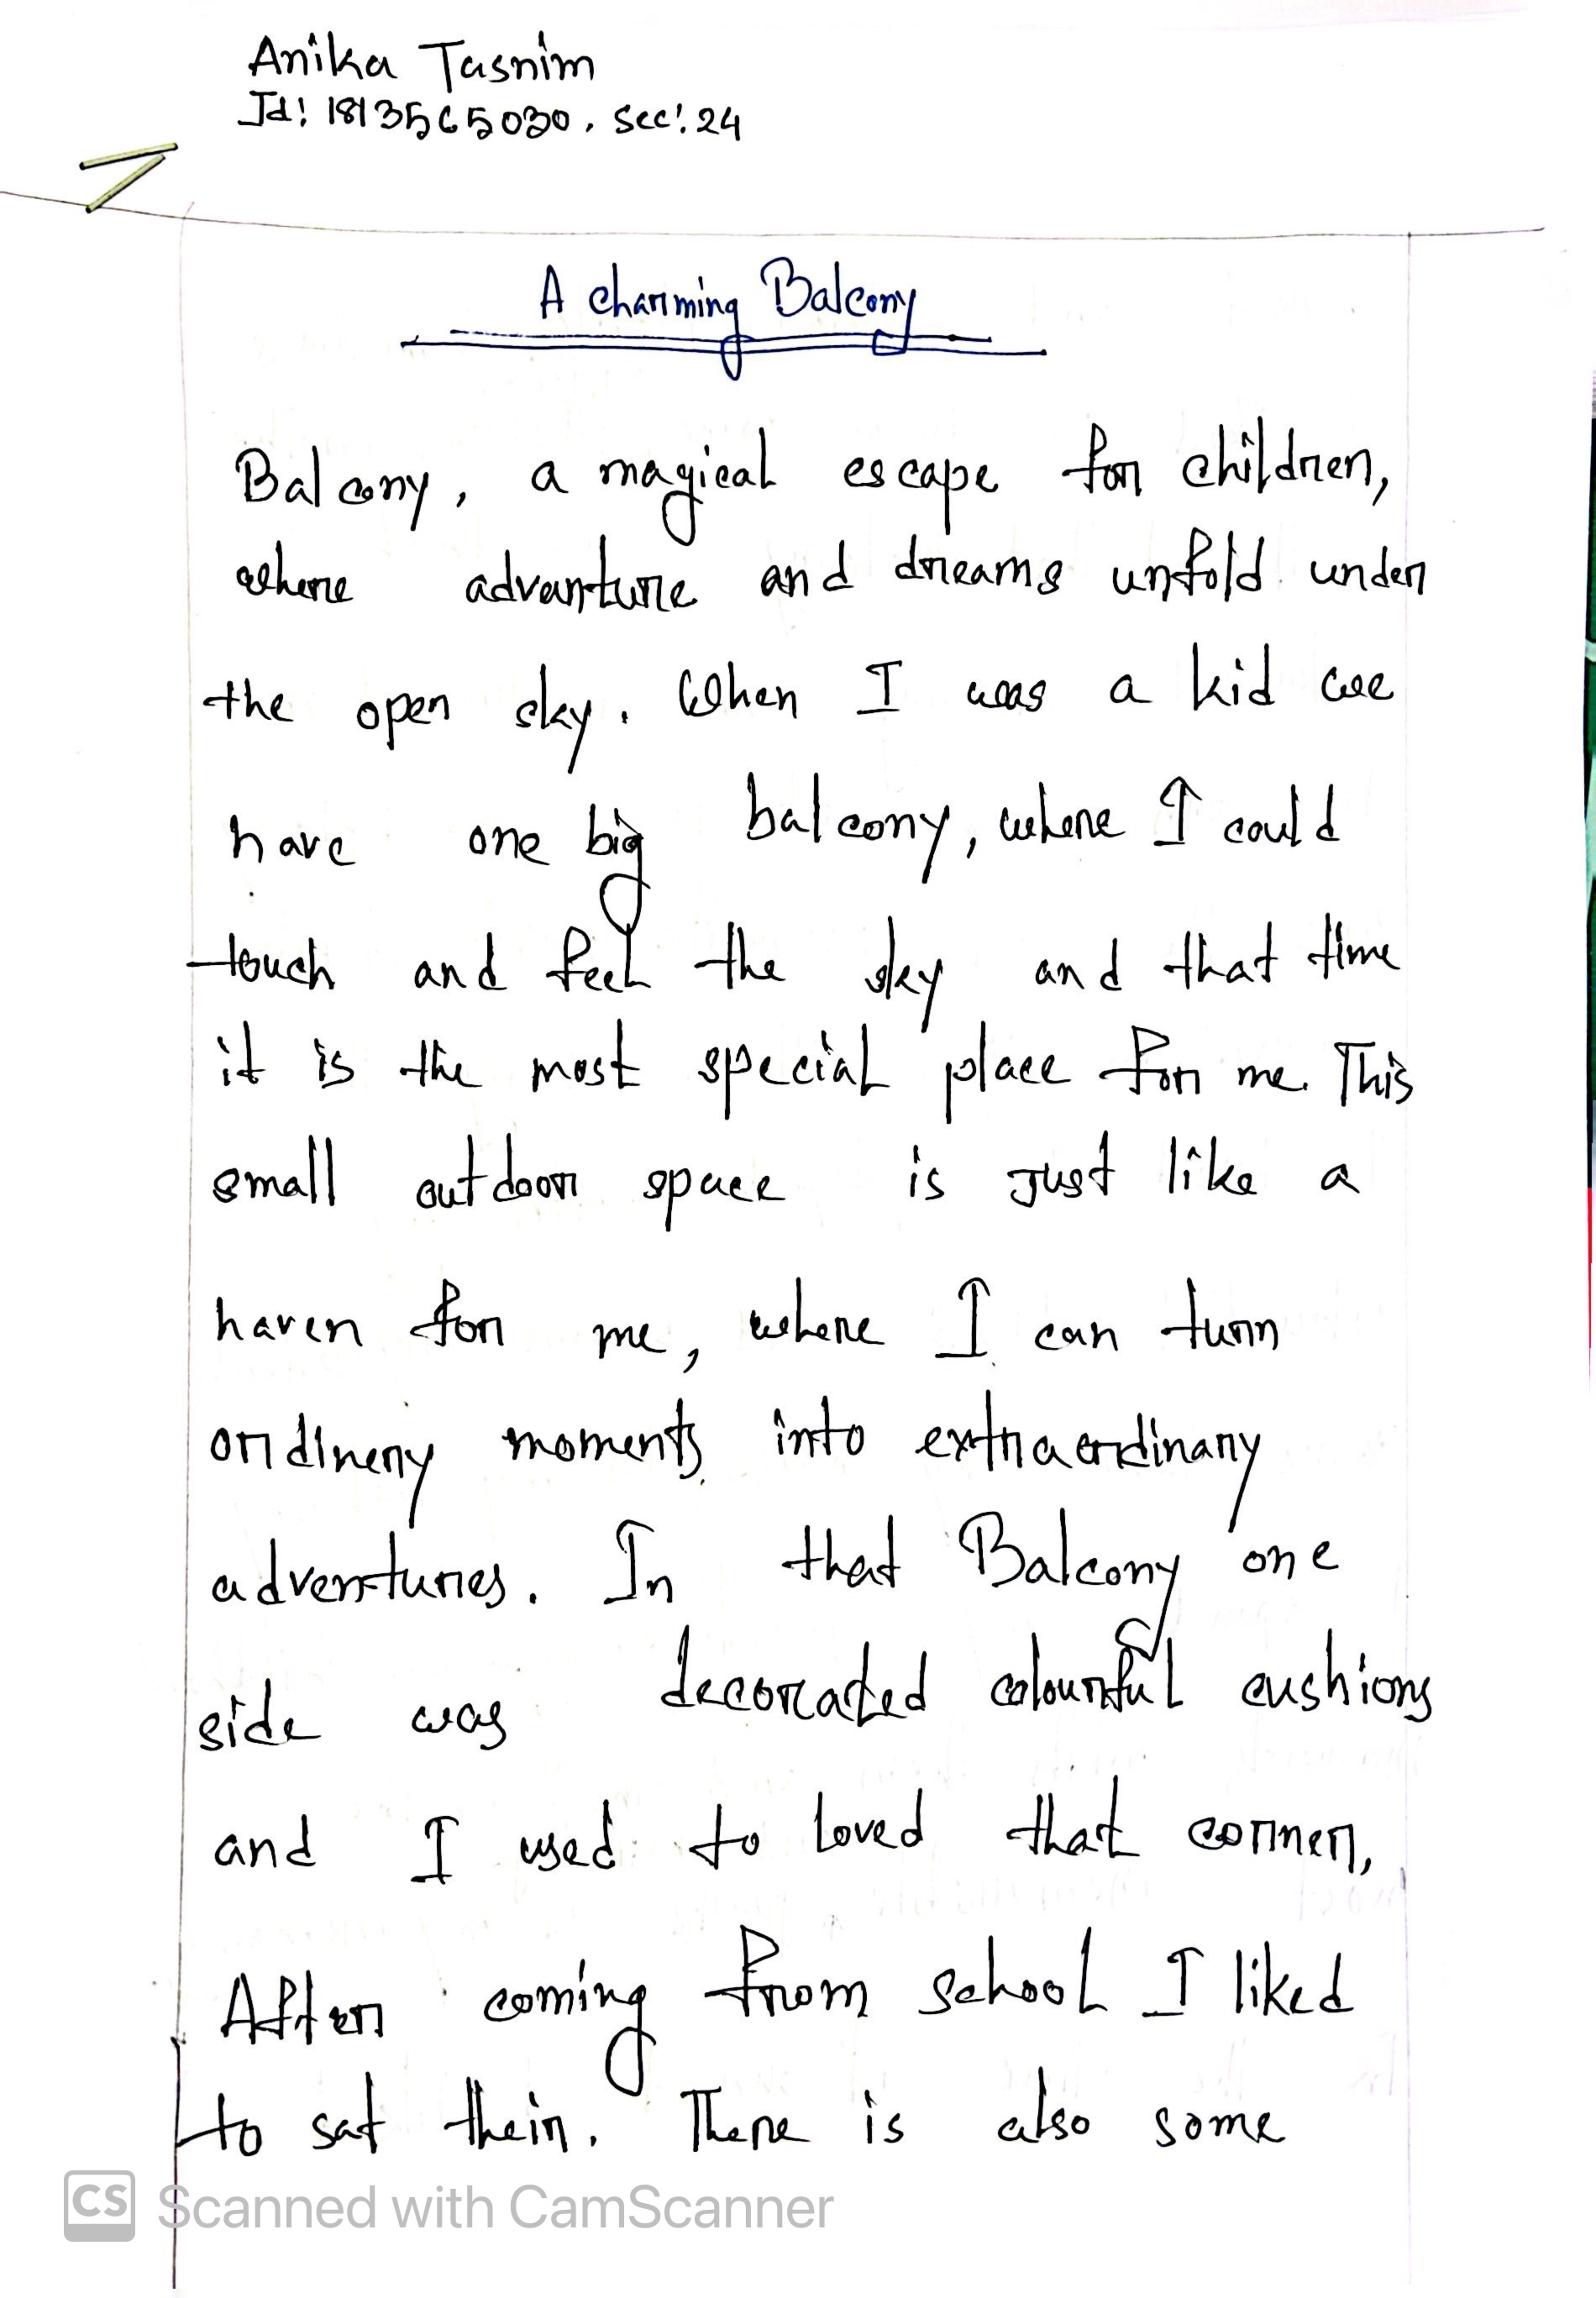 Anika Tasnim
Id: 1813565030, Sec: 24
A charming Balcony
Balcony, a magical escape for children,
where advanture and dreams unfold under
the open sky. When I was a kid we
have one big balcony, where I could
touch and feel the sky and that time
it is the most special place for me. This
small outdoor space is Just like a
haven for me, where I can turn
ordinery moments into extraordinary
adventures. In that Balcony one
side was decorated colourful cushions
and I used to loved that corner,
After coming from school I liked
to sat their. There is also some
CS Scanned with CamScanner